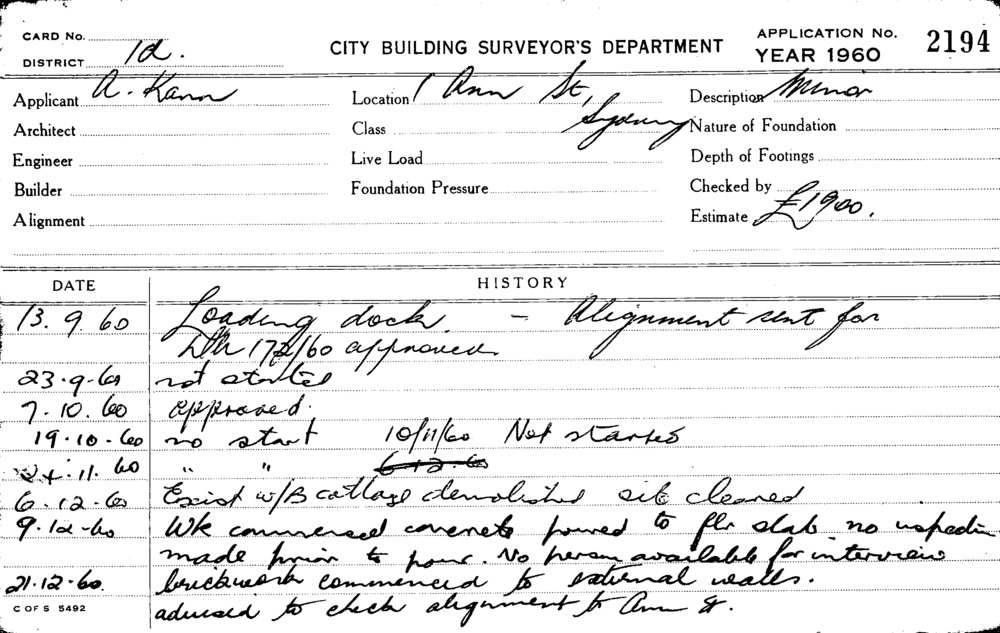 CARD No.
DISTRICT 1d.
CITY BUILDING SURVEYOR'S DEPARTMENT
APPLICATION No. 2194
YEAR 1960
Applicant A. Kann Location 1 Ann St, Sydney Description Minor
Architect Class Nature of Foundation
Engineer Live Load Depth of Footings
Builder Foundation Pressure Checked by
Alignment Estimate £1900.
DATE HISTORY
13.9.60 Loading dock. - Alignment sent for
172/60 approved
23.9.60 not started
7.10.60 approved.
19.10.60 no start 10/11/60 Not started
24.11.60 " " 6.12.60
6.12.60 Exist w/B cottage demolished site cleared
9.12.60 Wk commenced concrete poured to flr slab no inspection
made prior to pour. No person available for interview
21.12.60. brickwork commenced to external walls.
advised to check alignment to Ann St.
C OF S 5492